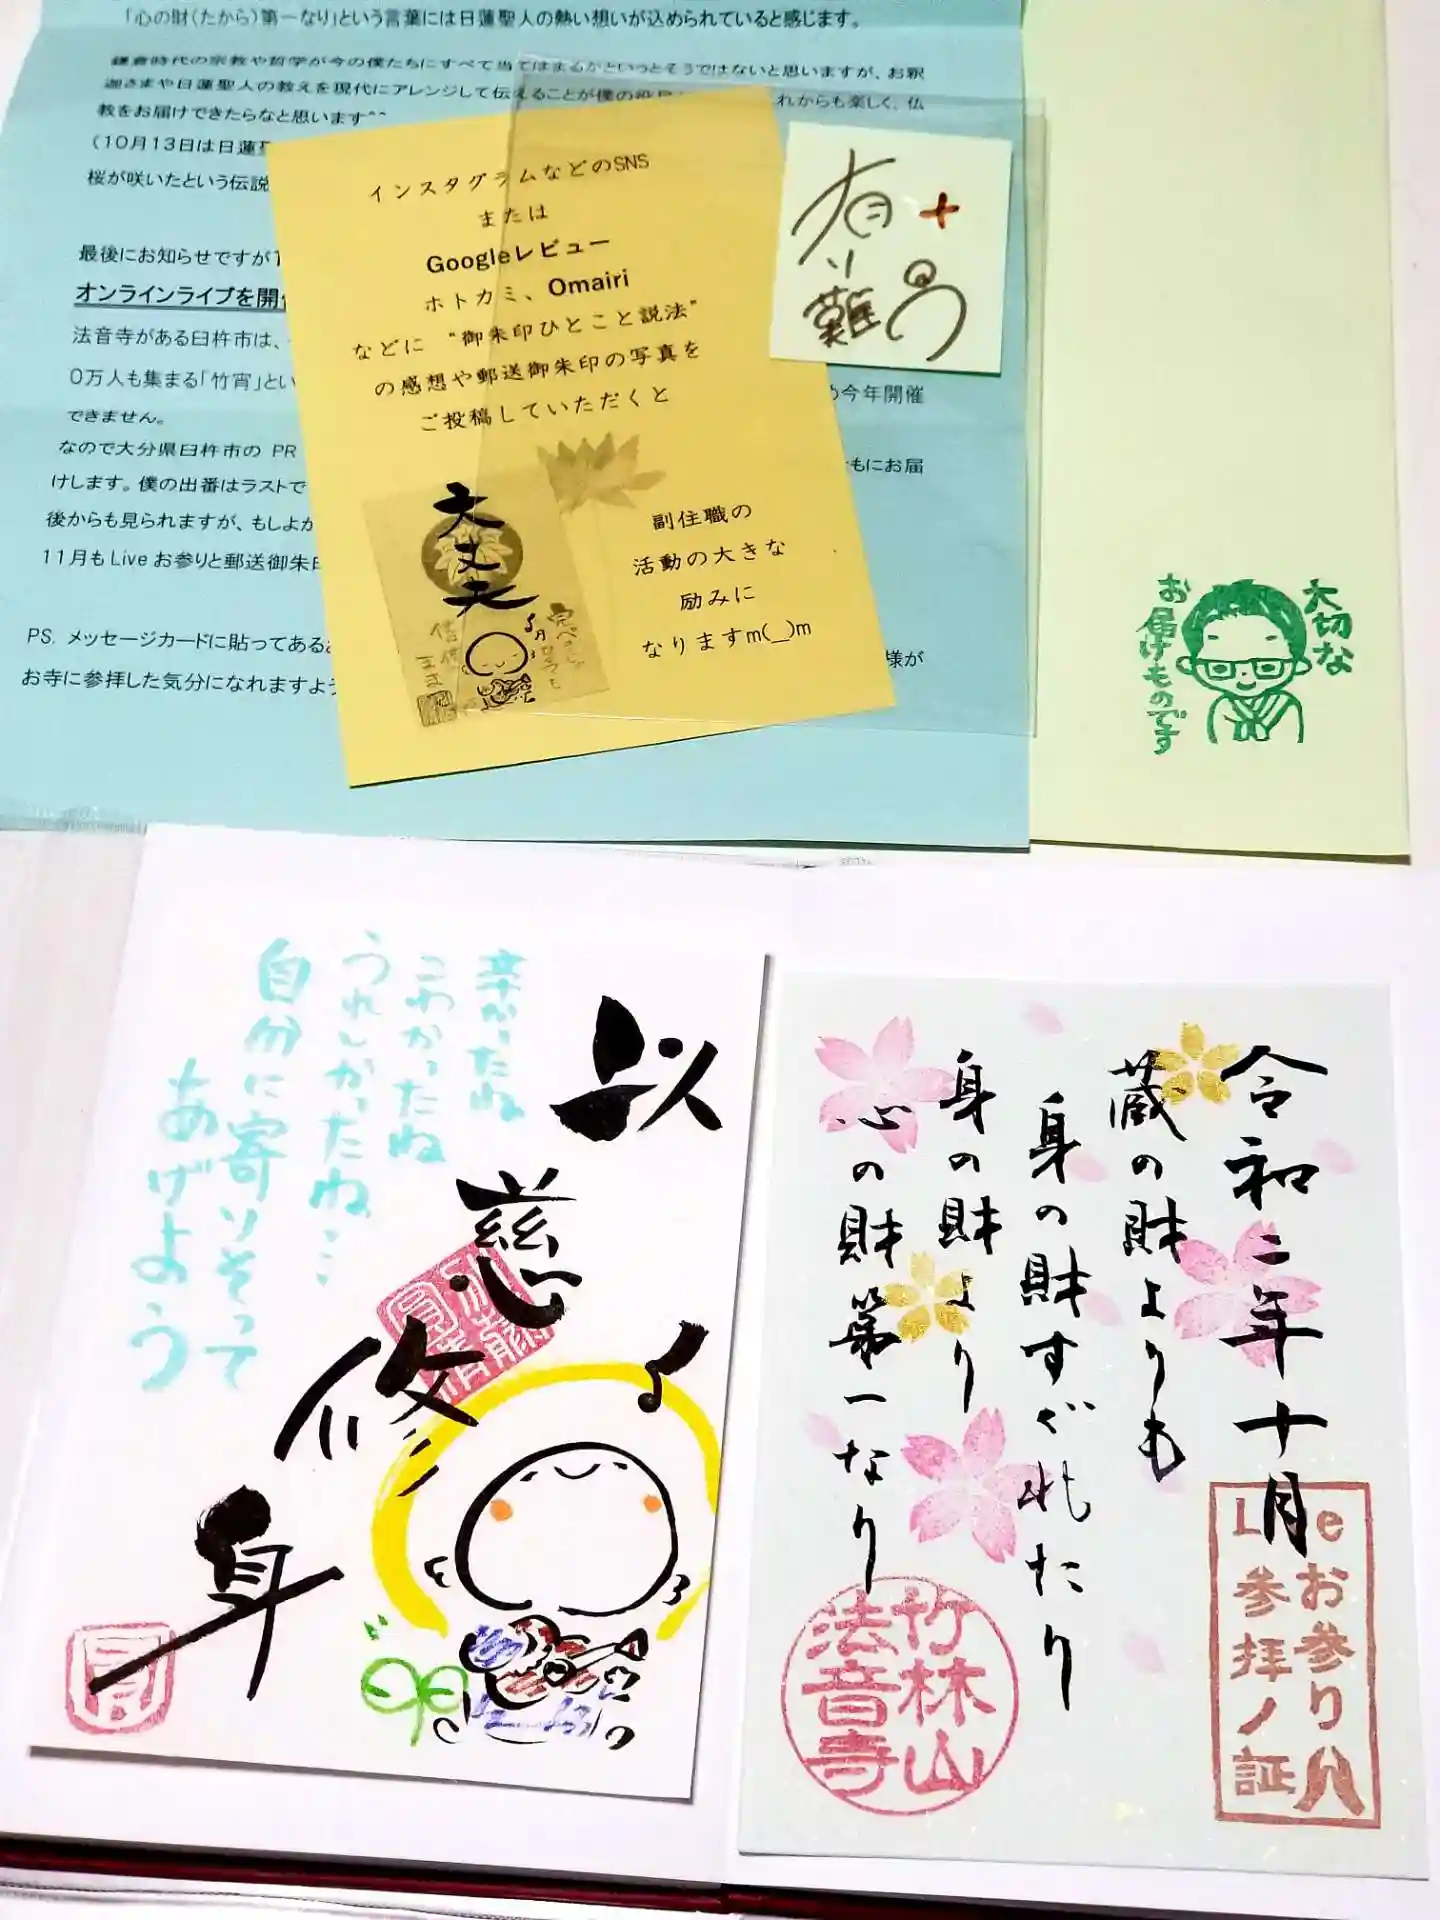 「心の財(たから)第一なり」という言葉には日蓮聖人の熱い想いが込められていると感じます。
鎌倉時代の宗教や哲学が今の僕たちにすべて当てはまるかというとそうではないと思いますが、お釈
迦さまや日蓮聖人の教えを現代にアレンジして伝えることが僕の役
れからも楽しく、仏
教をお届けできたらなと思います^^
(10月13日は日蓮
桜が咲いたという伝説
最後にお知らせですが
オンラインライブを開
法音寺がある臼杵市は、
0万人も集まる「竹宵」とい
今年開催
できません。
なので大分県臼杵市の PR
もにお届
けします。僕の出番はラストで
後からも見られますが、もしよか
11月も Live お参りと郵送御朱
PS. メッセージカードに貼ってある
様が
お寺に参拝した気分になれますよ
インスタグラムなどのSNS
または
Googleレビュー
ホトカミ、Omairi
などに “御朱印ひとこと説法”
の感想や郵送御朱印の写真を
ご投稿していただくと
副住職の
活動の大きな
励みに
なりますm(_)m
大丈夫
有り難
+
大切な
お届けものです
以慈修身
辛かったね
こわかったね
うれしかったね…
自分に寄りそって
あげよう
令和二年十月
蔵の財よりも
身の財すぐれたり
身の財より
心の財第一なり
Liveお参り
参拝ノ証
竹林山
法音寺